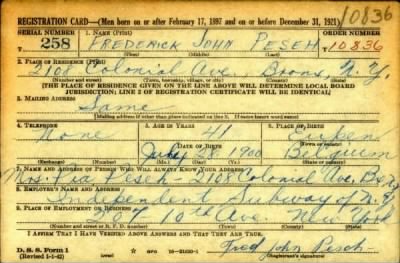 10836
REGISTRATION CARD—(Men born on or after February 17, 1897 and on or before December 31, 1921)
SERIAL NUMBER 1. NAME (Print) ORDER NUMBER
258 FREDERICK JOHN PESCH 10836
(First) (Middle) (Last)
2. PLACE OF RESIDENCE (Print)
2108 Colonial Ave. Bronx N.Y.
(Number and street) (Town, township, village, or city) (County) (State)
[THE PLACE OF RESIDENCE GIVEN ON THE LINE ABOVE WILL DETERMINE LOCAL BOARD
JURISDICTION; LINE 2 OF REGISTRATION CERTIFICATE WILL BE IDENTICAL]
3. MAILING ADDRESS
Same
[Mailing address if other than place indicated on line 2. If same insert word same]
4. TELEPHONE 5. AGE IN YEARS 6. PLACE OF BIRTH
None 41 Eupen
DATE OF BIRTH
1900 Belgium
(Exchange) (Number) (Mo.) (Day) (Yr.) (State or country)
7. NAME AND ADDRESS OF PERSON WHO WILL ALWAYS KNOW YOUR ADDRESS
Mrs. Pesch - 2108 Colonial Ave, Bronx
8. EMPLOYER'S NAME AND ADDRESS
Independent Subway of N.Y.
9. PLACE OF EMPLOYMENT OR BUSINESS
207 10th Ave. New York
(Number and street or R. F. D. number) (Town) (County) (State)
I AFFIRM THAT I HAVE VERIFIED ABOVE ANSWERS AND THAT THEY ARE TRUE.
D. S. S. Form 1
(Revised 1-1-42) Fred John Pesch
(Registrant's signature)